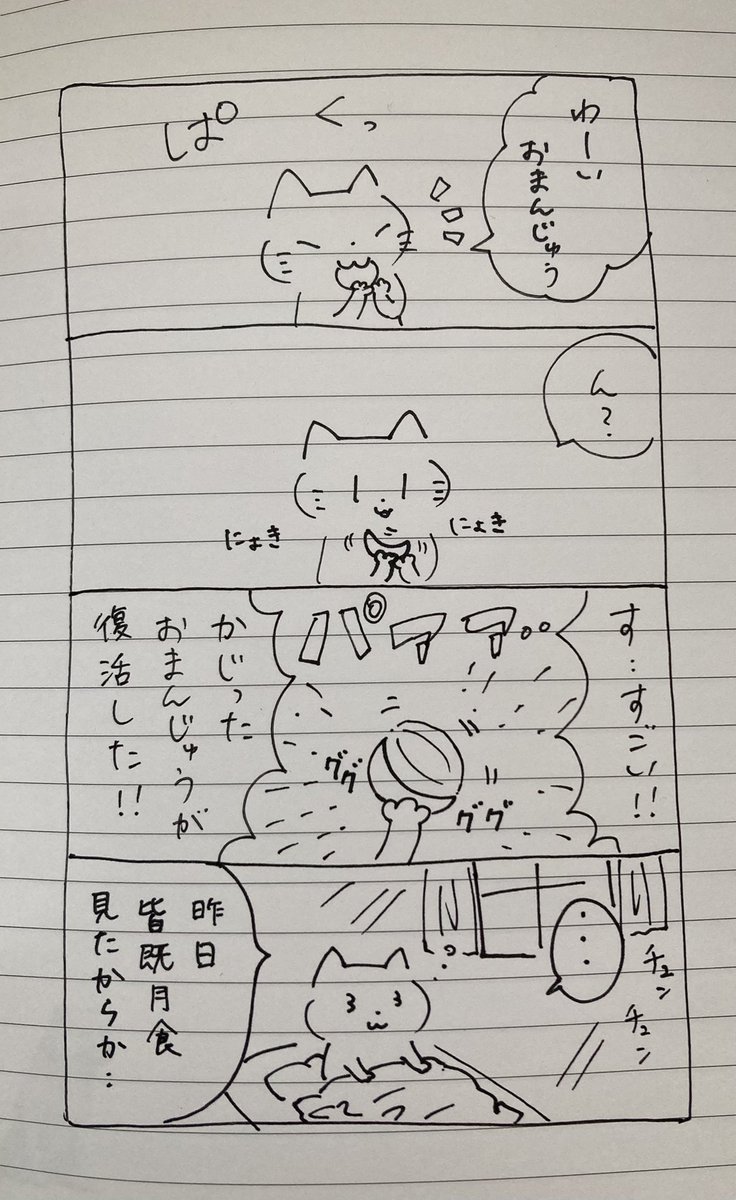 わーい
おまんじゅう
ぱくっ
ん?
にょき
にょき
す…すごい!!
グググ
グググ
かじった
おまんじゅうが
復活した!!
チュン
チュン
…
昨日
皆既月食
見たからか…